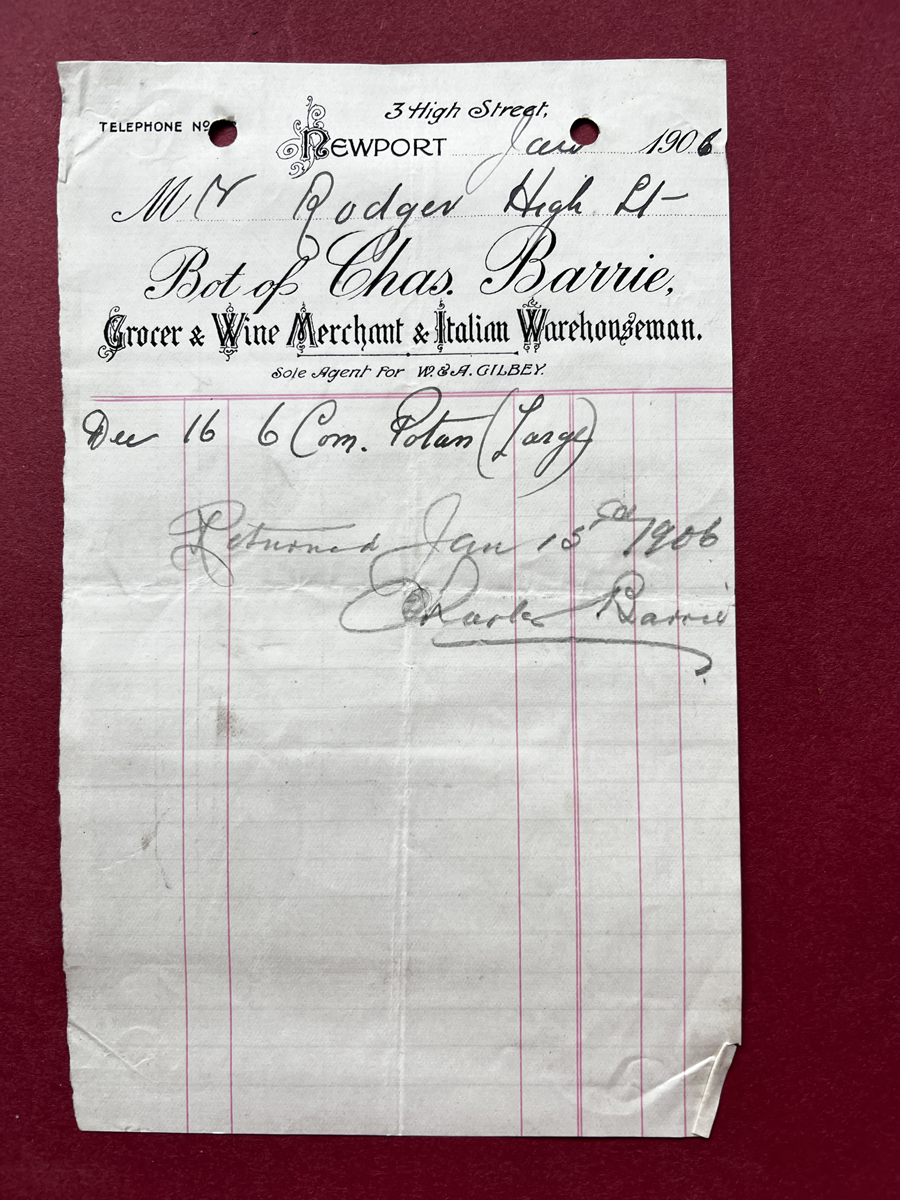 3 High Street,
TELEPHONE No
NEWPORT Jan 1906
Mr Rodger High St
Bot of Chas. Barrie,
Grocer & Wine Merchant & Italian Warehouseman.
Sole Agent For W. & A. GILBEY.
Dec 16 6 Com. (Large)
Returned Jan 15 1906
Charles Barrie